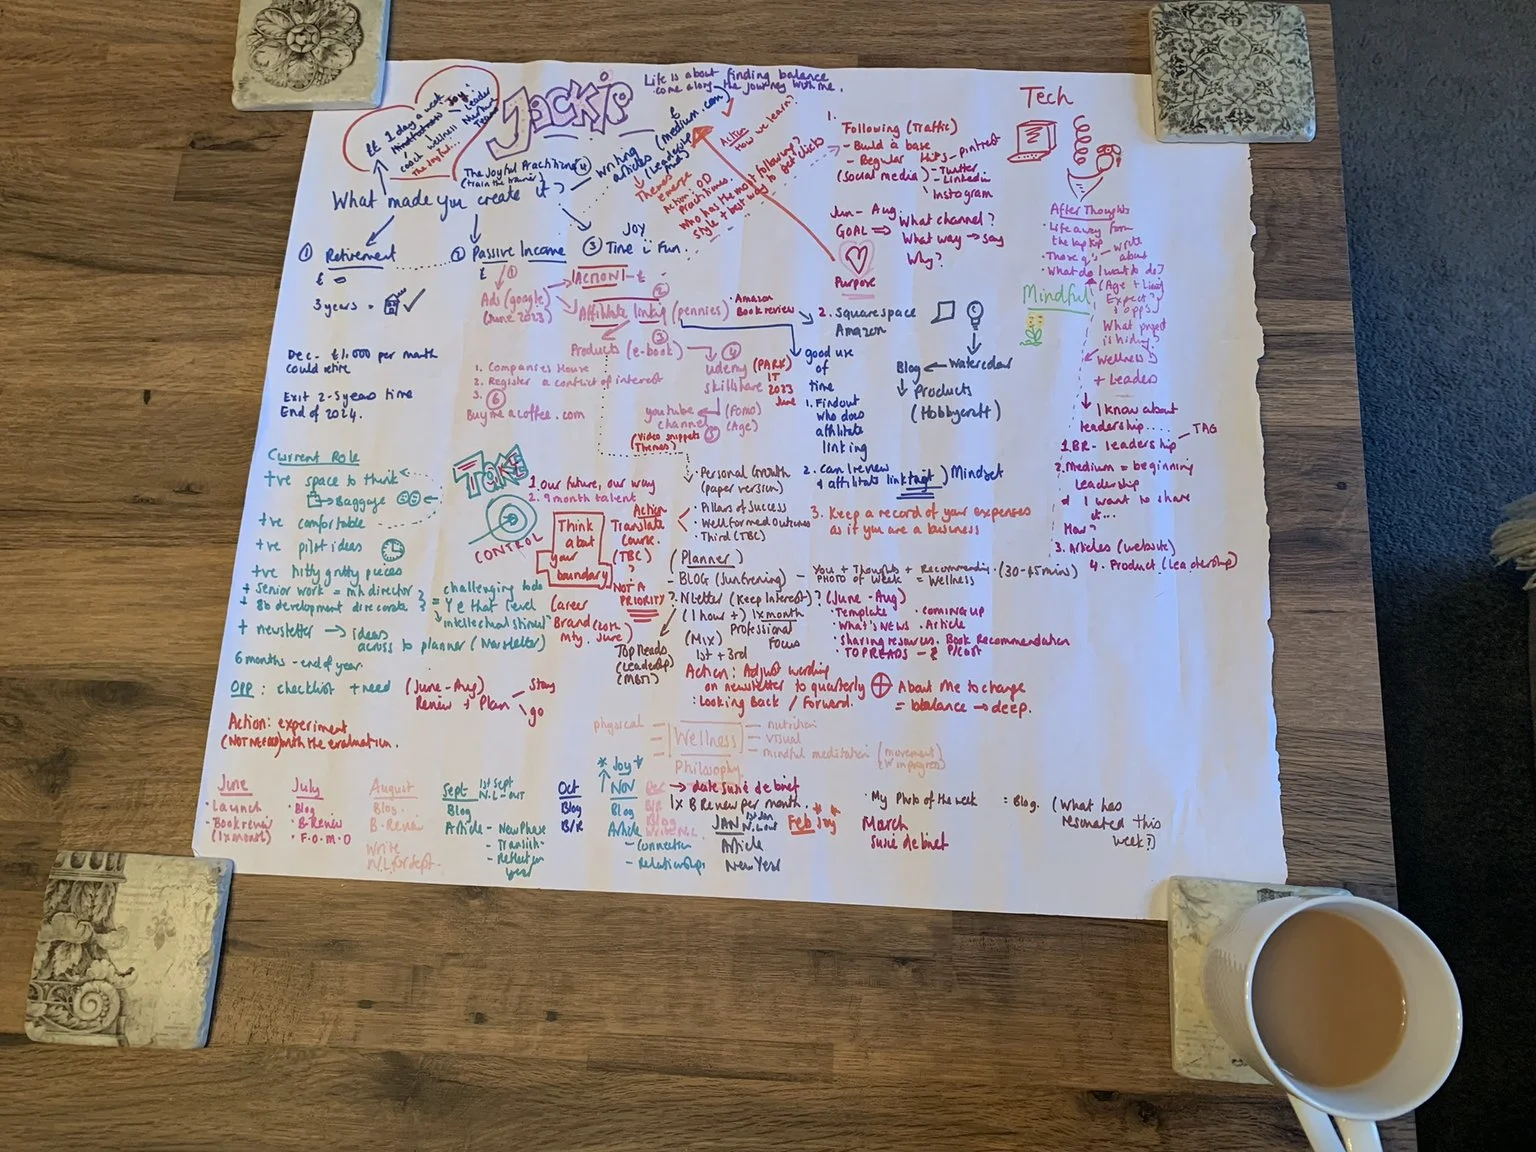 JACKIE
Life is about finding balance
come along the journey with me.
1 day a week
Mindfulness
coach wellness
The Joyful...
Joy:
Leader
Nurture
Team
The Joyful Practitioner ④
(train the trainer)
What made you create it?
writing
articles
(medium.com)
(Leadership
Themes
emerge
Action: OD
Practitioners.
who has the most following?
style + best way to get clicks
Action
How we learn?
① Retirement
3 years =
Dec - £1,000 per month
could retire
Exit 2-5 years time
End of 2024.
② Passive Income
£
①
Ads (google)
(June 2023)
JOY
③ Time & Fun.
ACTION - £
②
Affiliate linking (pennies)
• Amazon
Book review
③
Products (e-book)
④
udemy
skillshare
(PARK)
IT
2023
June
1. Companies House
2. Register a conflict of interest
3. ⑥
Buy me a coffee.com
youtube
channel
⑤
(FOMO)
(Age)
(Video snippets
Themes)
1.
Following (Traffic)
- Build a base
- Regular Hits - pintrest
(social media) - Twitter
- Linkedin
Instogram
Jun - Aug
GOAL ⇒ What channel?
What way → say
Why?
Purpose
2. Squarespace
Amazon
good use
of
time
1. Findout
who does
affilitate
linking
2. can I review
& affilitate link
target) Mindset
3. Keep a record of your expenses
as if you are a business
Blog ← Watercolour
↓ Products
(Hobbycraft)
Tech
After Thoughts
• Life away from
the laptop
• Those q's - write
about
• What do I want to do?
(Age + Living
Expect?
+ opps)
What project
is hiding?
Wellness
+ Leaders
Mindful
↓ I know about
leadership....
1. BR - leadership - TAG
2. Medium = beginning
Leadership
& I want to share
it...
How?
3. Articles (website)
4. Product (Leadership)
Current Role
+ve space to think
→ Baggage
+ve comfortable
+ve pilot ideas
+ve nitty gritty pieces
+ senior work = mh director
+ 8b development directorate
= challenging
that level
intellectual stimul
+ newsletter → ideas
across to planner (Newsletter)
6 months - end of year.
OPP: checklist + need
(June - Aug)
Renew + Plan
Stay
go
Action: experiment
(NOT NEEDED) with the evaluation.
TAKE
CONTROL
1. our future, our way
2. 9 month talent
Think
about
your
boundary
Action
Translate
Course.
(TBC)
?
NOT A
PRIORITY
Career
Brand (20th
mtg. June)
• Personal Growth
(paper version)
• Pillars of Success
• Well formed Outcomes
• Third (TBC)
(Planner)
- BLOG (Sun Evening) -
You + Thoughts + Recommending • (30-45mins)
PHOTO OF Week = Wellness
? NLetter (Keep Interest)? (June - Aug)
(1 hour +) 1x month
Professional
Focus
(Mix)
1st + 3rd
Top Reads
(Leadership)
(MBTI)
• Template
• What's NEWS
• COMING UP
• Article
• Sharing resources. Book Recommendation
• TOP READS - & P/Cast
Action: Adjust wording
on newsletter to quarterly
: Looking Back / Forward.
About Me to change
= balance → deep.
physical
Wellness
Philosophy
nutrition
visual
mindful meditation (movement)
(W in progress)
June
• Launch
• Book review
(1x month)
July
• Blog
• B-Review
• F.O.M.O
August
Blog.
B-Review
Write
N/L for Sept.
Sept
1st Sept
N.L - OUT
Blog
Article - New Phase
- Transition
- Reflection
year
Oct
Blog
B/R
* Joy *
Nov
Blog
Article
- Connection
- Relationships
Dec
B/R
Blog
Write N.L.
→ date susie debrief
1x B Review per month.
JAN
1st Jan
N.L out
Article
New Year
Feb Joy
March
Susie debrief
• My Photo of the week
= Blog. (What has
resonated this
week?)